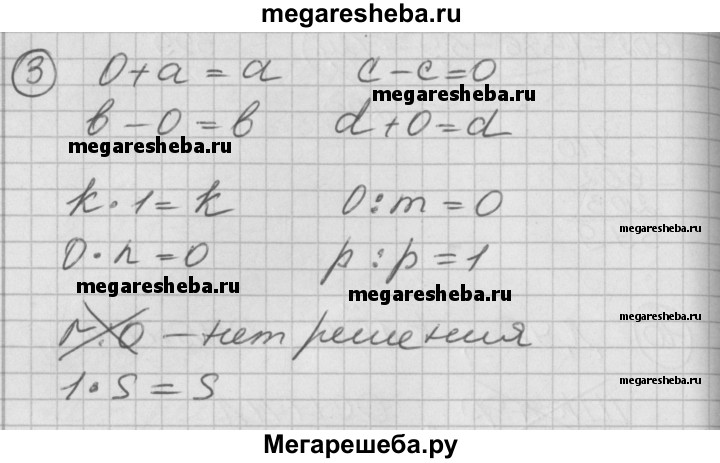 megaresheba.ru
3 0+a=a c-c=0
megaresheba.ru
в-0=в d+0=d
megaresheba.ru
k·1=k 0:m=0
megaresheba.ru
0·n=0 p:p=1
megaresheba.ru megaresheba.ru
megaresheba.ru
r:0 — нет решения
1·s=s
megaresheba.ru
Мегарешеба.ру